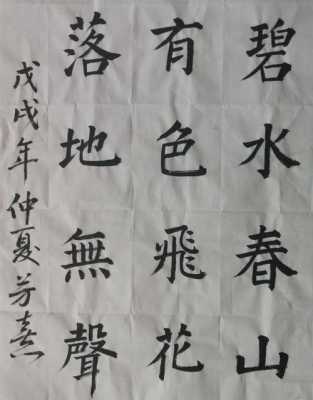 碧水春山
有色飛花
落地無聲
戊戌年仲夏芳熹